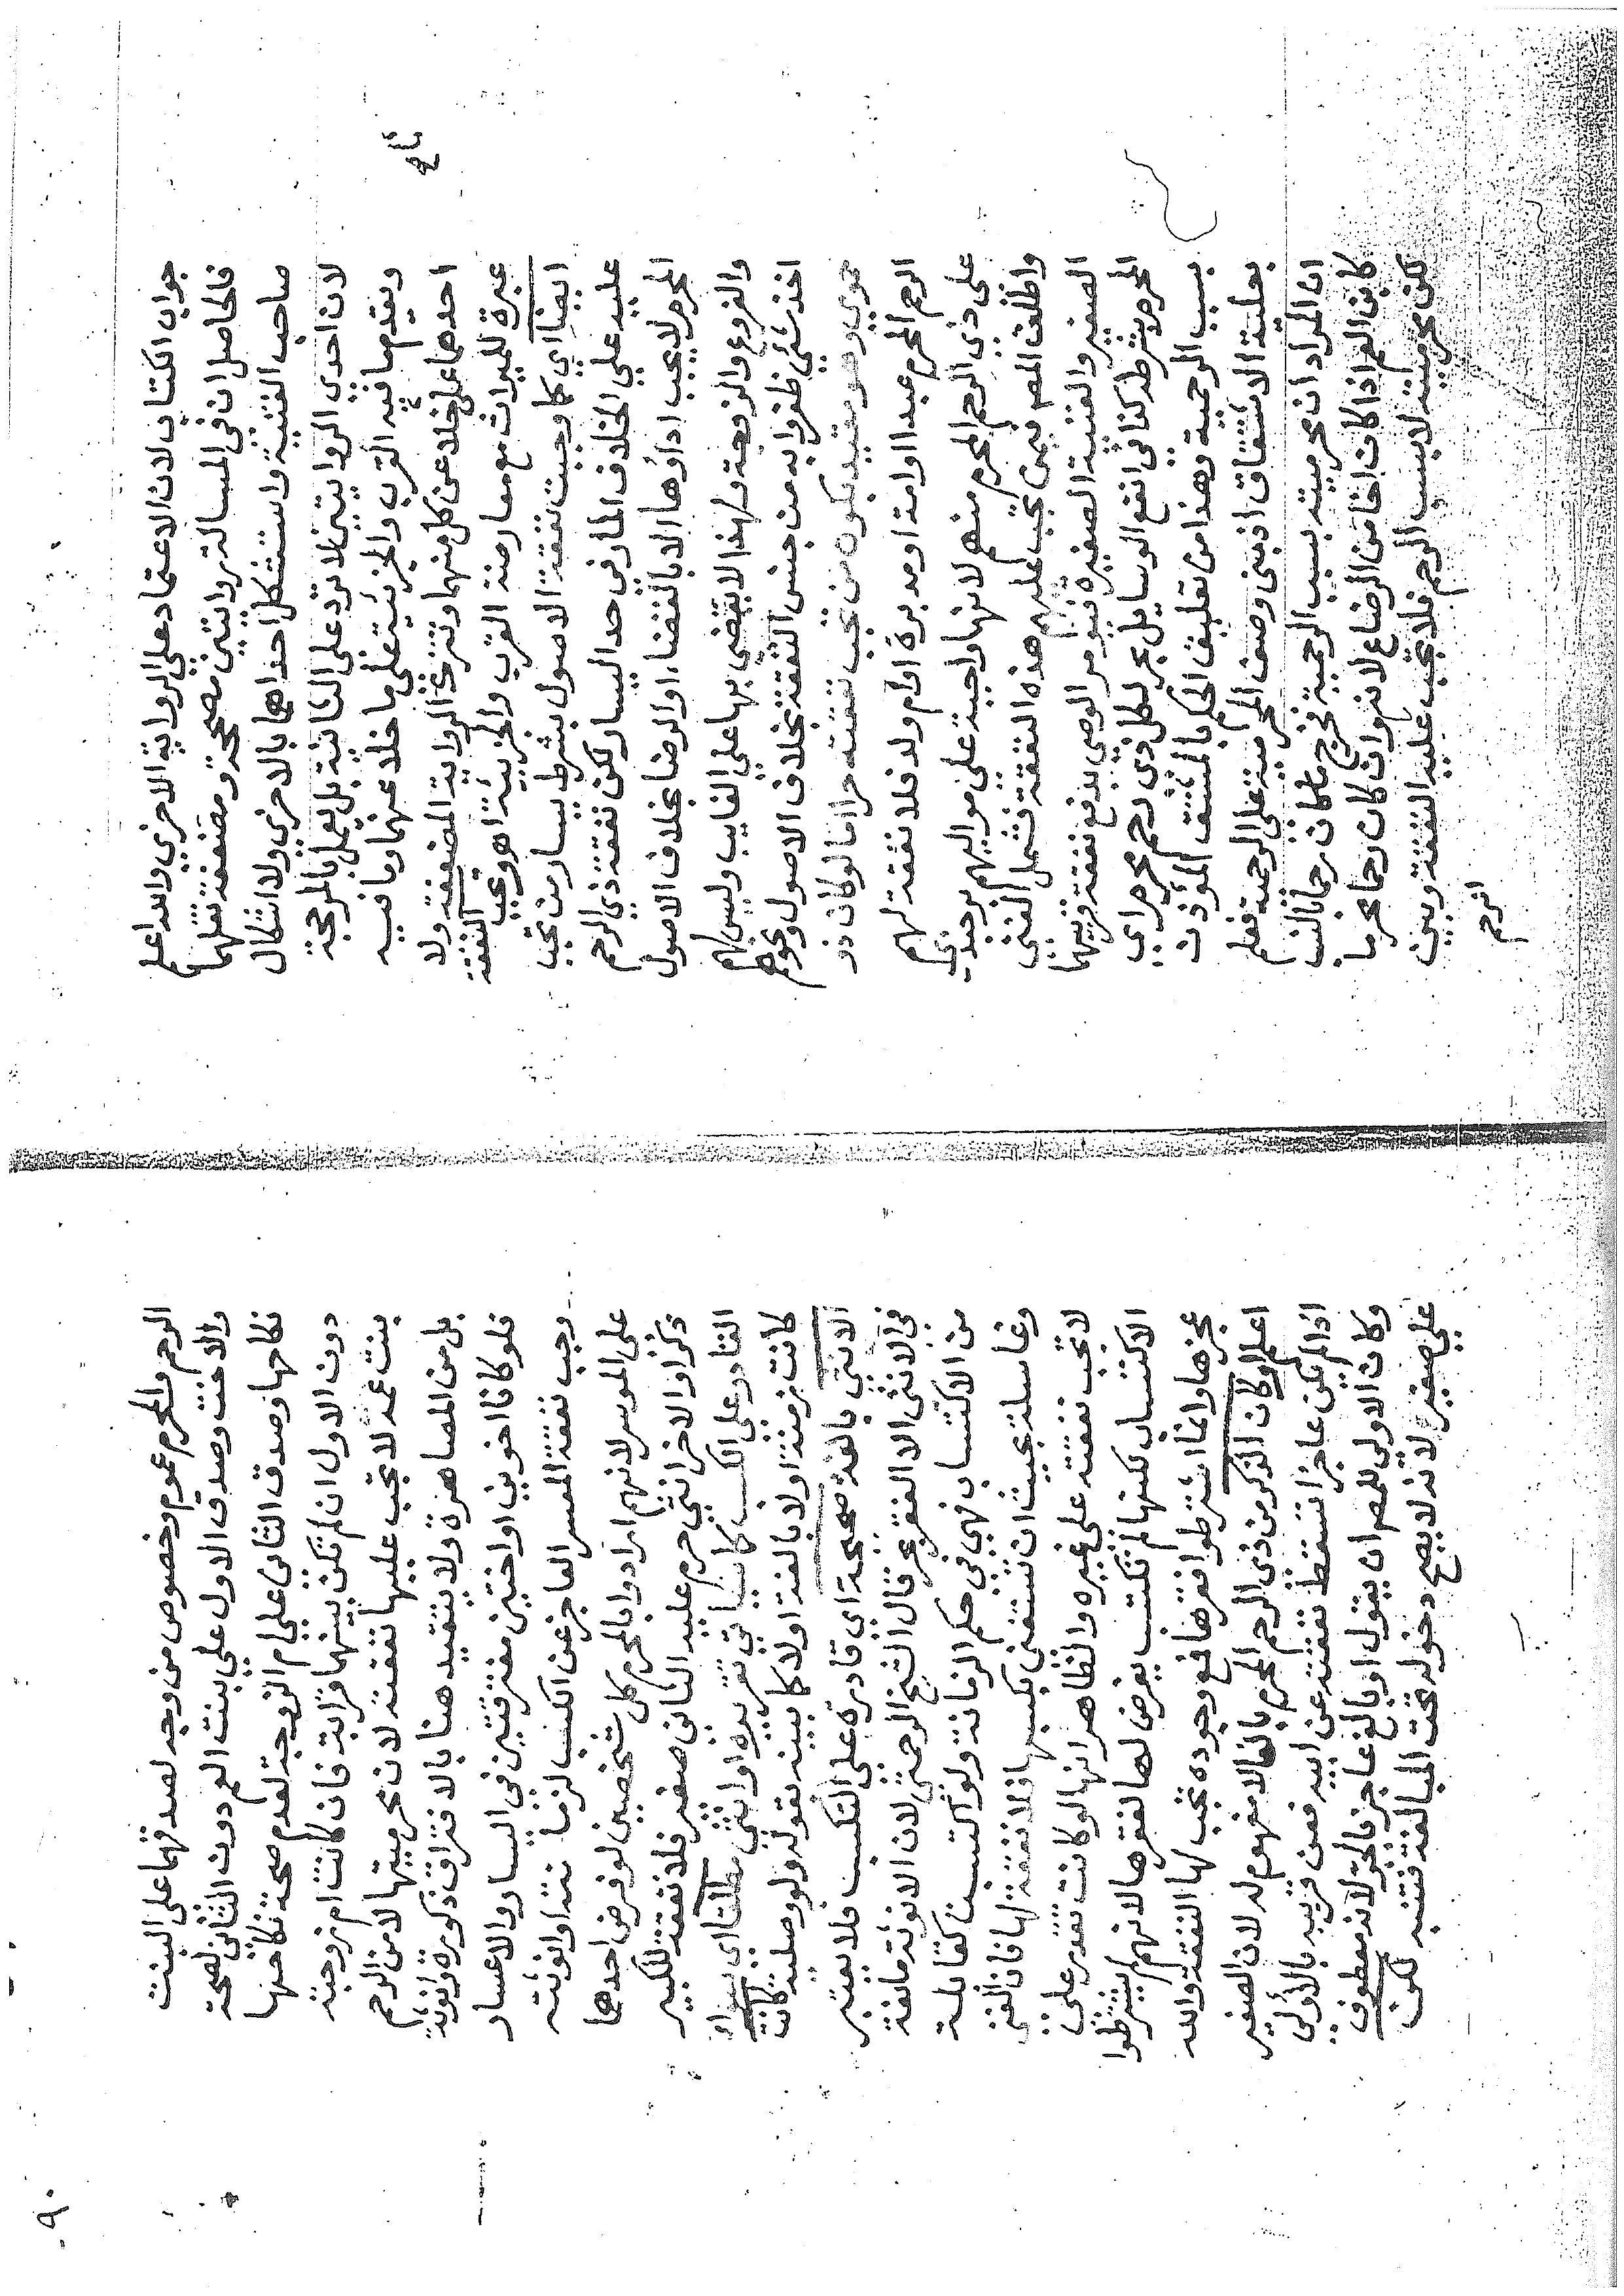 جواب الكتاب لان الاعتماد على الرواية الاخرى والله اعلم
فالحاصل ان في المسالة روايتين مصححة ومضعفة نقلهما
صاحب القنية واستشكل احداهما بالاخرى ولا اشكال
لان احدى الروايتين لا ترد على الثانية بل يعمل بالمرجحة
ويقدم ما فيه القرب والجزئية على ما خلا عنهما وما فيه
احدهما على ما خلا عن كل منهما وتترك الرواية المضعفة ولا
عبرة للميراث مع معارضة القرب والجزئية اهـ وتجب النفقة
ايضا اي كما وجبت نفقة الاصول بشرط يسار من تجب
عليه على الخلاف المار في حد اليسار لكن نفقة ذي الرحم
المحرم لا يجب اداؤها الا بالقضاء او الرضا بخلاف الاصول
والفروع والزوجة ولهذا لا يقضى بها على الغايب وليس لهم
اخذ شئ ظفروا به من جنس النفقة بخلاف الاصول ونحوهم
حموي وهو مقيد بكون من تجب نفقته حرا اما لو كان ذو
الرحم المحرم عبدا او امة او مدبرة او ام ولد فلا نفقة لهم
على ذي الرحم المحرم منهم لانها واجبة على مواليهم برجندي
واطلق المص فيمن تجب عليهم هذه النفقة فشمل الغني
الصغير والغنية الصغيرة فيومر الوصي بدفع نفقة قريبهما
المحرم بشرطه كذا في انفع الوسايل بحر لكل ذي رحم محرم اي
بسبب الرحمية وهذا من تعليق الحكم بالمشتق المؤذن
بعلية الاشتقاق اذ مبنى وصف المحرمية على الرحمية فعلم
ان المراد ان محرميته بسبب الرحمية فخرج ما كان رحما بالنسب
كابن العم اذا كان اخا من الرضاع لانه وان كان رحما محرما
لكن محرميته لا بسبب الرحم فلا تجب عليه النفقة وبين
الرحم
٩٠
الرحم والمحرم عموم وخصوص من وجه لصدقهما على البنت
والاخت وصدق الاول على بنت العم دون الثاني لصحة
نكاحها وصدق الثاني على ام الزوجة لعدم صحة نكاحها
دون الاول ان لم تكن بينهما قرابة فان كانت ام زوجته
بنت عمه لا تجب عليها نفقته لان محرميتها لا من الرحم
بل من المصاهرة ولا يتقيد هنا بالافتراق ذكورة وانوثة
فلو كانا اخوين او اختين مفترقتين في اليسار والاعسار
وجب نفقة المعسر العاجز عن الكسب لزمانته او انوثته
على الموسر لانهم ارادوا بالمحرم كل شخصين لو فرض احدهما
ذكرا والاخر انثى حرم عليه الثاني صغير فلا نفقة للكبير
القادر على الكسب كما سياتي تقريره او انثى مطلقا اي سواء
كانت زمنة او لا بالغة او لا كما بينه بقوله ولو وصلية كانت
الانثى بالغة صحيحة اي قادرة على التكسب فلا يعتبر
في الانثى الا الفقر بحر قال الشيخ الرحمتي لان الانوثة مانعة
من الاكتساب فهي في حكم الزمانة ولو اكتسبت كقابلة
وغاسلة بحيث ان تستغني بكسبها فلا نفقة لها فان الغني
لا تجب نفقته على غيره والظاهر انها لو كانت تقدر على
الاكتساب لكنها لم تكتسب يفرض لها لفقرها لانهم لم يشترطوا
عجزها وانما اشترطوا فقرها فمع وجوده تجب لها النفقة والله
اعلم او كان الذكر من ذي الرحم المحرم بالغا لا مفهوم له لان الصغير
اذا لم يكن عاجزا تسقط نفقته عن ابيه فعن قريبه بالاولى
وكان الاولى للمص ان يقول او بالغ عاجز بالجر لانه معطوف
على صغير لانه لا يصح دخوله تحت المبالغة فتنبه لكن